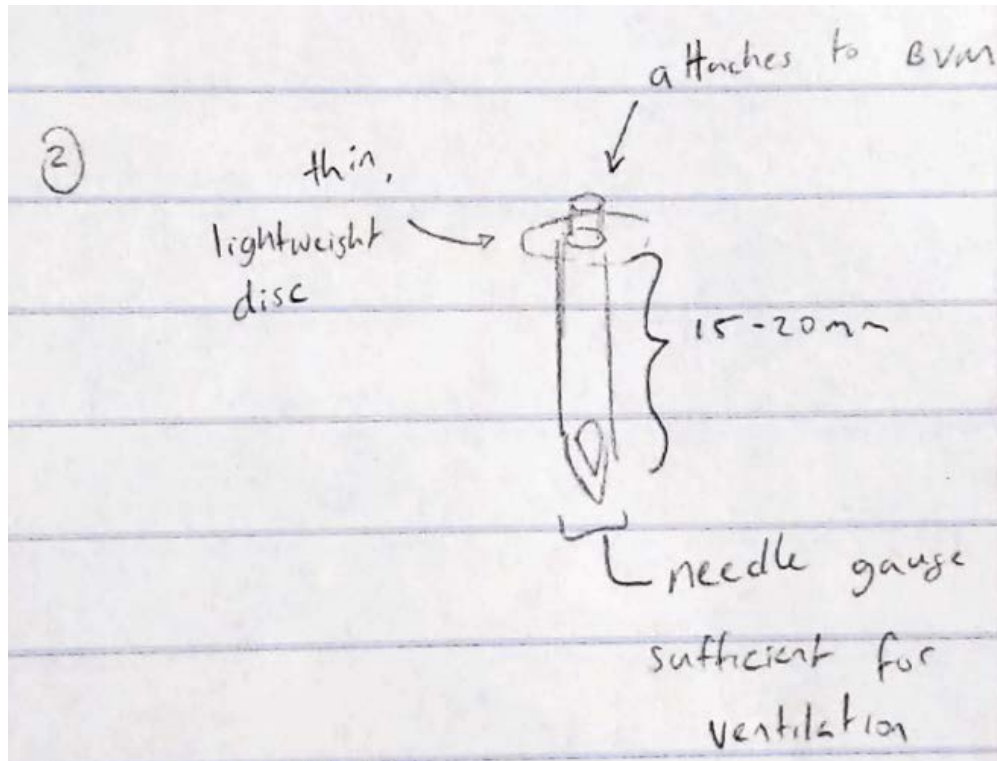 attaches to BVM
2
thin,
lightweight
disc
15-20mm
needle gauge
sufficient for
ventilation